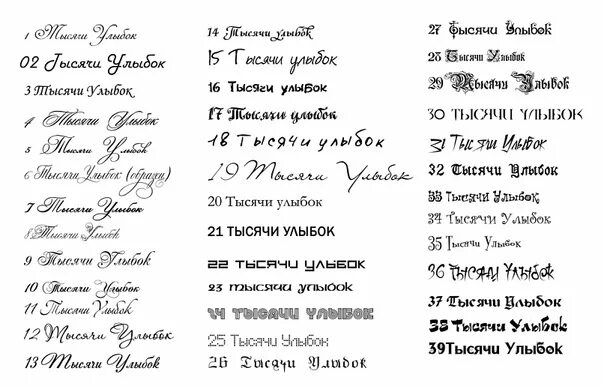 1 Тысячи Улыбок
02 Тысячи Улыбок
3 Тысячи Улыбок
4 Тысячи Улыбок
5 Тысячи Улыбок
6 Тысячи Улыбок (образец)
7 Тысячи Улыбок
8 Тысячи Улыбок
9 Тысячи Улыбок
10 Тысячи Улыбок
11 Тысячи Улыбок
12 Тысячи Улыбок
13 Тысячи Улыбок
14 Тысячи Улыбок
15 Тысячи улыбок
16 Тысячи улыбок
17 Тысячи улыбок
18 Тысячи улыбок
19 Тысячи Улыбок
20 Тысячи улыбок
21 ТЫСЯЧИ УЛЫБОК
22 тысячи улыбок
23 тысячи улыбок
24 тысячи улыбок
25 Тысячи Улыбок
26 Тысячи Улыбок
27 Тысячи Улыбок
28 Тысячи Улыбок
29 Тысячи Улыбок
30 ТЫСЯЧИ УЛЫБОК
31 Тысячи Улыбок
32 Тысячи Улыбок
33 Тысячи Улыбок
34 Тысячи Улыбок
35 Тысячи Улыбок
36 Тысячи Улыбок
37 Тысячи Улыбок
38 Тысячи Улыбок
39Тысячи Улыбок